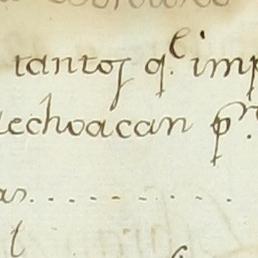 tantos q.e imp
echoacan p.r
as